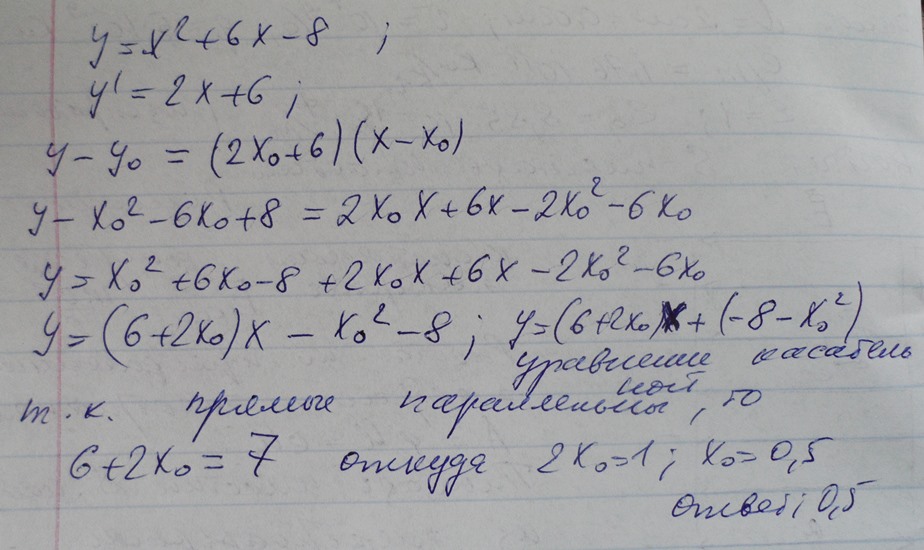 y = x² + 6x - 8 ;
y' = 2x + 6 ;
y - y₀ = (2x₀+6)(x - x₀)
y - x₀² - 6x₀ + 8 = 2x₀x + 6x - 2x₀² - 6x₀
y = x₀² + 6x₀ - 8 + 2x₀x + 6x - 2x₀² - 6x₀
y = (6+2x₀)x - x₀² - 8 ; y = (6+2x₀)x + (-8 - x₀²)
уравнение касатель
ной
т.к. прямые параллельны, то
6 + 2x₀ = 7 откуда 2x₀ = 1 ; x₀ = 0,5
ответ: 0,5